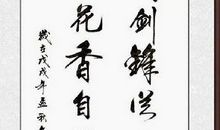 劍鋒從
花香自
歲在戊戌年孟秋